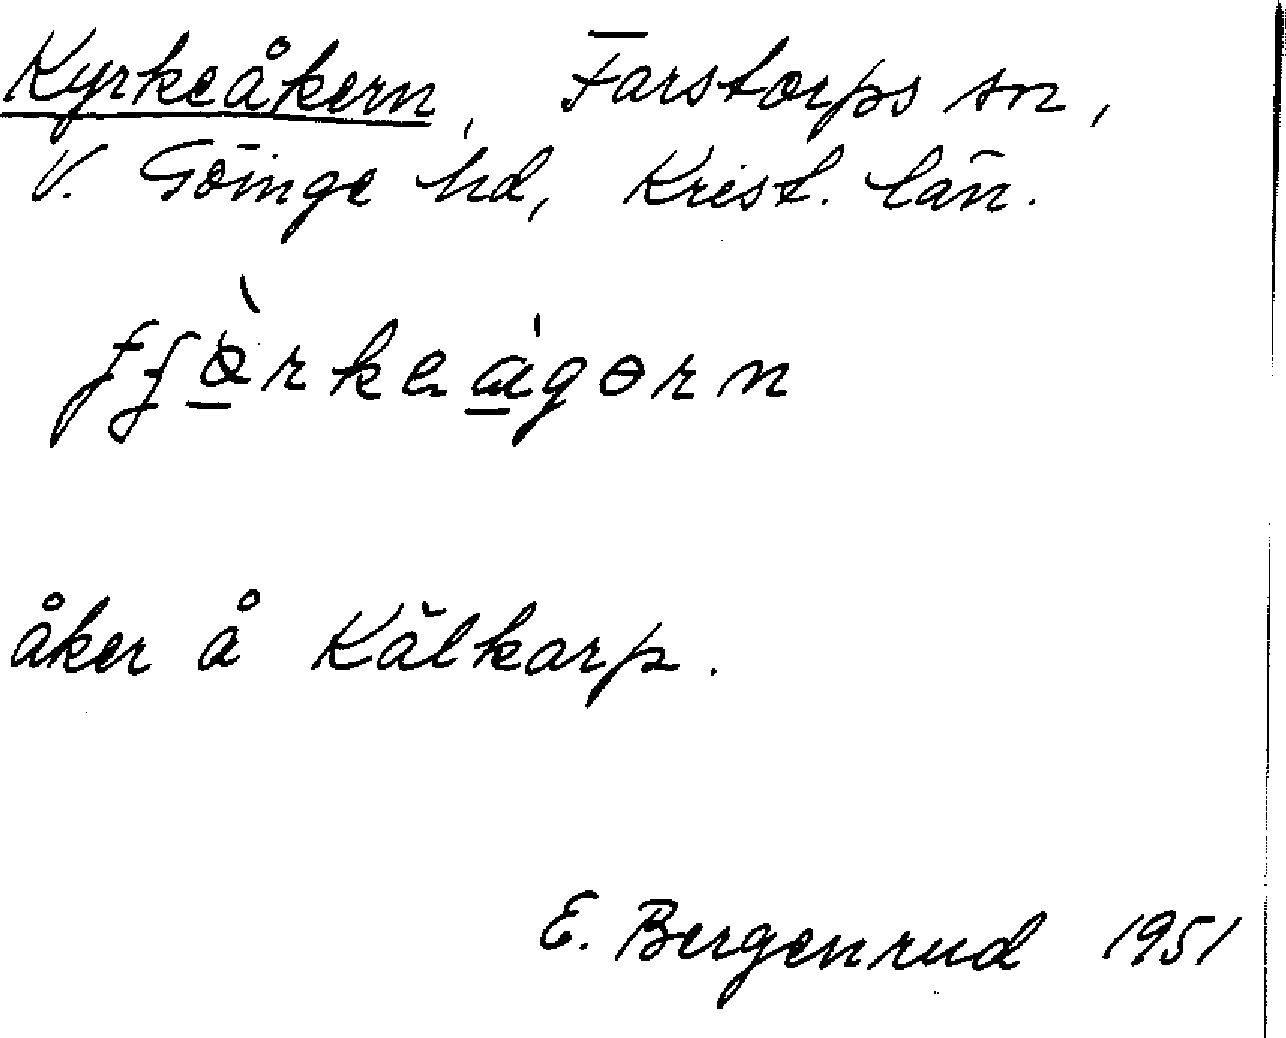 Kyrkeåkern, Farstorps sn,
V. Göinge hd, Krist. län.
åker å Kălkarp.
E. Bergenrud 1951